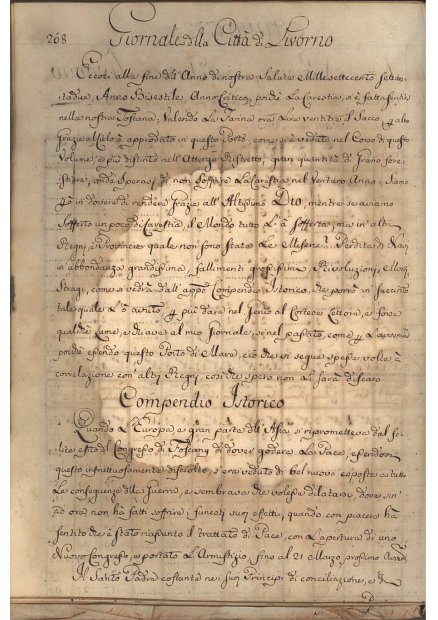 268
Giornale della Città di Livorno
Eccoti alla fine dell Anno di nostra Salute Mille settecento settan-
tadue, Anno Bisestile Anno Critico, poichè La Carestia, si è fatta sentir
nella nostra Toscana, Valendo La Farina ora Lire ventitre il Sacco, e
grazie al Cielo è approdato in questo Porto, come si è veduto nel Corso di questo
Volume, e più distinto nell Ristretto, gran quantità di Grano fore-
stiero, onde Sperasi di non Soffrire La Carestia nel Venturo Anno: Siamo
in dovere di rendere Grazie all Altissimo Dio, mentre se aviamo
Sofferto un poco di Carestia, il Mondo tutto L à Sofferta, ma in altri
Regni, e Provincie quale non sono state Le Miserie? Perdita di Navi
in abbondanza grandissima, fallimenti grossissimi, Rivoluzioni, Morti,
Stragi, come si vedrà dall Compendio Istorico, che porrò in succinto
tale quale L ò avuto, può dare nel Genio al Cortese Lettore, e serve
qualche Lume, e chiave al mio Giornale, sì nel passato, come L avvenire
poichè essendo questo Porto di Mare, ciò che vi segue spesse volte à
correlazione con altri Regni, così che spero non Le sarà discaro
Compendio Istorico
Quando L Europa e gran parte dell Asia si riprometteva dal fe-
lice esito del Congresso di Foscany di dover godere La Pace, essendosi
questo infruttuosamente disciolto, s era veduta di bel nuovo esposta a tutte
Le conseguenze della Guerra, e sembrava che volesse dilatarsi dove sin
ad ora non hà fatti soffrire i funesti suoi effetti, quando con piacere hà
sentito che è stato riassunto il trattato di Pace, con L apertura di uno
Nuovo Congresso, e portato L Armistizio, fino al 21 Marzo prossimo
Il Santo Padre costante nei suoi Principi di conciliazione, e di